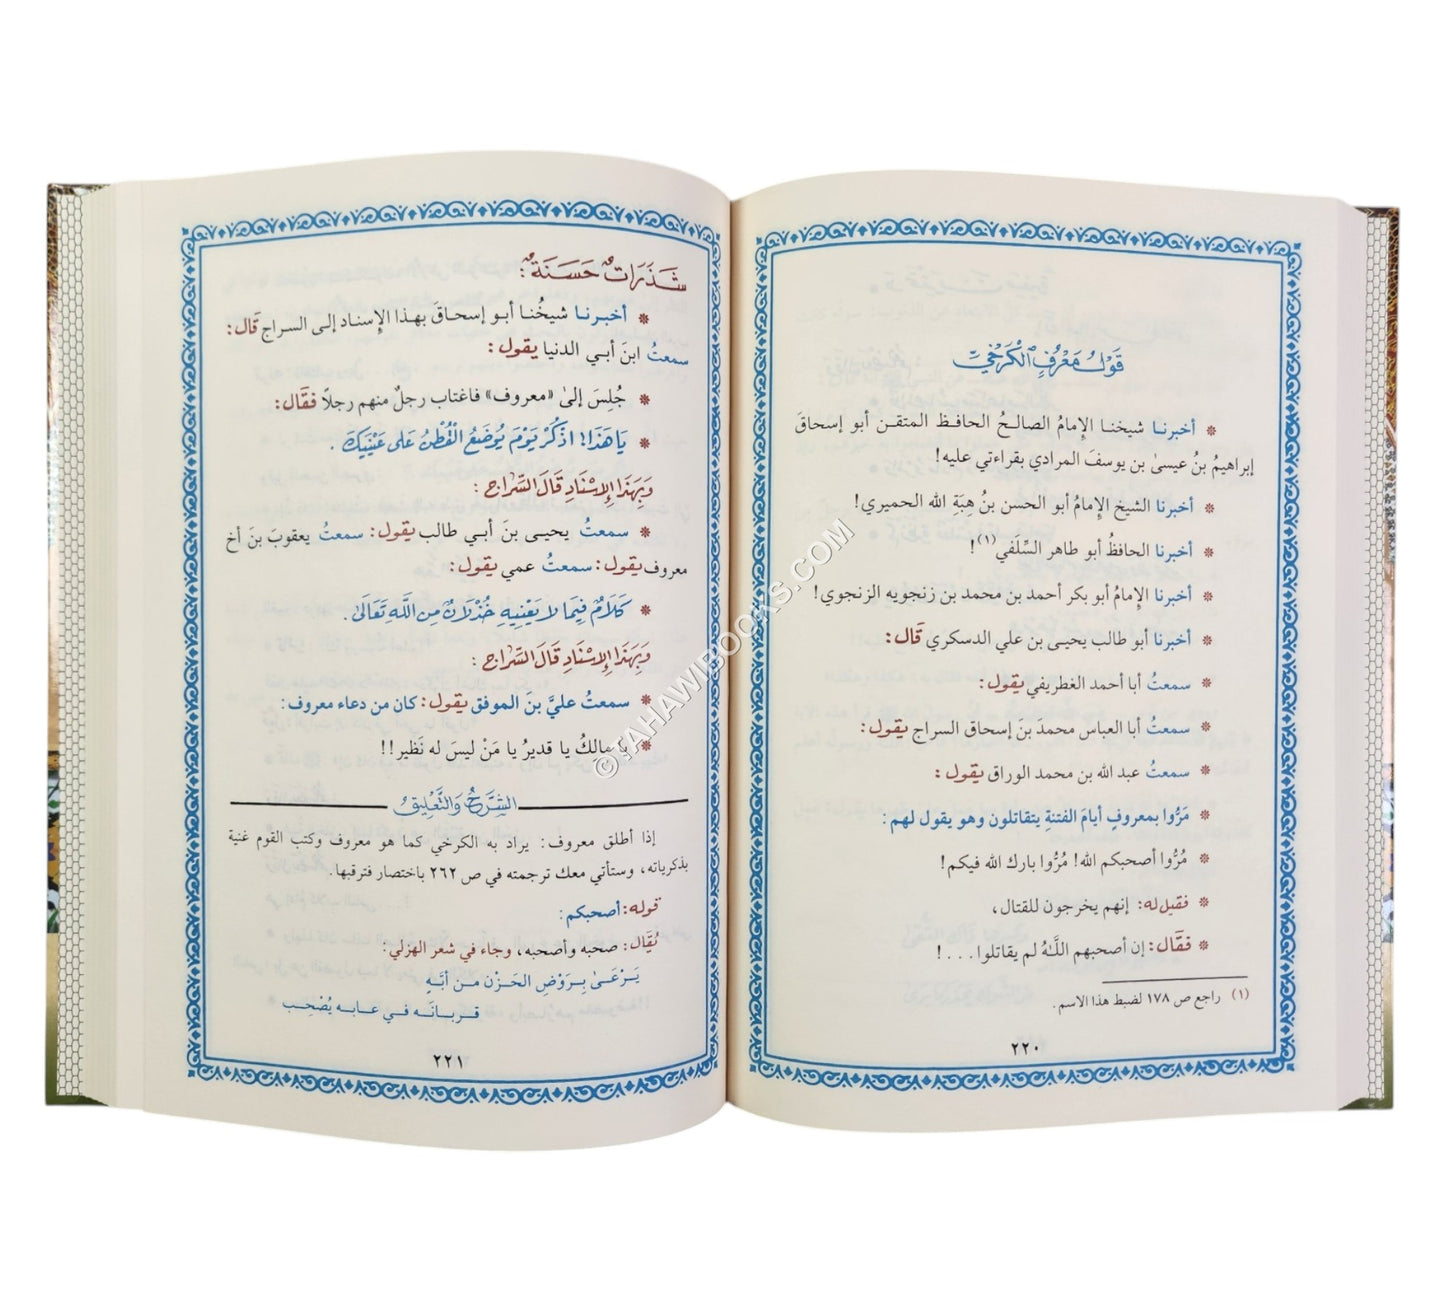 قَوْلُ مَعْرُوفٍ الْكَرْخِيِّ
* أخبرنا شيخنا الإمامُ الصالحُ الحافظ المتقن أبو إسحاقَ
إبراهيمُ بنُ عيسىٰ بن يوسفَ المرادي بقراءتي عليه!
* أخبرنا الشيخ الإمامُ أبو الحسن بنُ هِبَةِ الله الحميري!
* أخبرنا الحافظُ أبو طاهر السِّلَفي(١)!
* أخبرنا الإمامُ أبو بكر أحمد بن محمد بن زنجويه الزنجوي!
* أخبرنا أبو طالب يحيىٰ بن علي الدسكري قال:
* سمعتُ أبا أحمد الغطريفي يقول:
* سمعتُ أبا العباس محمدَ بنَ إسحاق السراج يقول:
* سمعتُ عبد الله بن محمد الوراق يقول:
* مَرُّوا بمعروفٍ أيامَ الفتنةِ يتقاتلون وهو يقول لهم:
* مُرُّوا أصحبكم الله! مُرُّوا بارك الله فيكم!
* فقيل له: إنهم يخرجون للقتال،
* فقال: إن أصحبهم اللَّهُ لم يقاتلوا...!
(١) راجع ص ١٧٨ لضبط هذا الاسم.
٢٢٠
شَذَرَاتٌ حَسَنَةٌ:
* أخبرنا شيخُنا أبو إسحاقَ بهذا الإسناد إلى السراج قال:
سمعتُ ابنَ أبي الدنيا يقول:
* جُلِسَ إلىٰ «معروف» فاغتاب رجلٌ منهم رجلاً فقال:
* يَا هَذَا! اذْكُرْ يَوْمَ يُوضَعُ الْقُطْنُ عَلَى عَيْنَيْكَ.
وَبِهَذَا الإِسْنَادِ قَالَ السَّرَّاج:
* سمعتُ يحيىٰ بنَ أبي طالب يقول: سمعتُ يعقوبَ بنَ أخ
معروف يقول: سمعتُ عمي يقول:
* كَلَامٌ فِيمَا لَا يَعْنِيهِ خُذْلَانٌ مِنَ اللَّهِ تَعَالَى.
وَبِهَذَا الإِسْنَادِ قَالَ السَّرَّاج:
* سمعتُ عليَّ بنَ الموفق يقول: كان من دعاء معروف:
* يا مالكُ يا قديرُ يا مَنْ ليسَ له نَظير!!
الشَّرْحُ وَالتَّعْلِيقُ
إذا أطلق معروف: يراد به الكرخي كما هو معروف وكتب القوم غنية
بذكرياته، وستأتي معك ترجمته في ص ٢٦٢ باختصار فترقبها.
قوله: أصحبكم:
يُقَال: صحبه وأصحبه، وجاء في شعر الهزلي:
يَرْعَىٰ بِرَوْضِ الحَزْن من أبِّهِ
قربانَه في عابه يُصْحِب
٢٢١
© TAHAWIBOOKS.COM